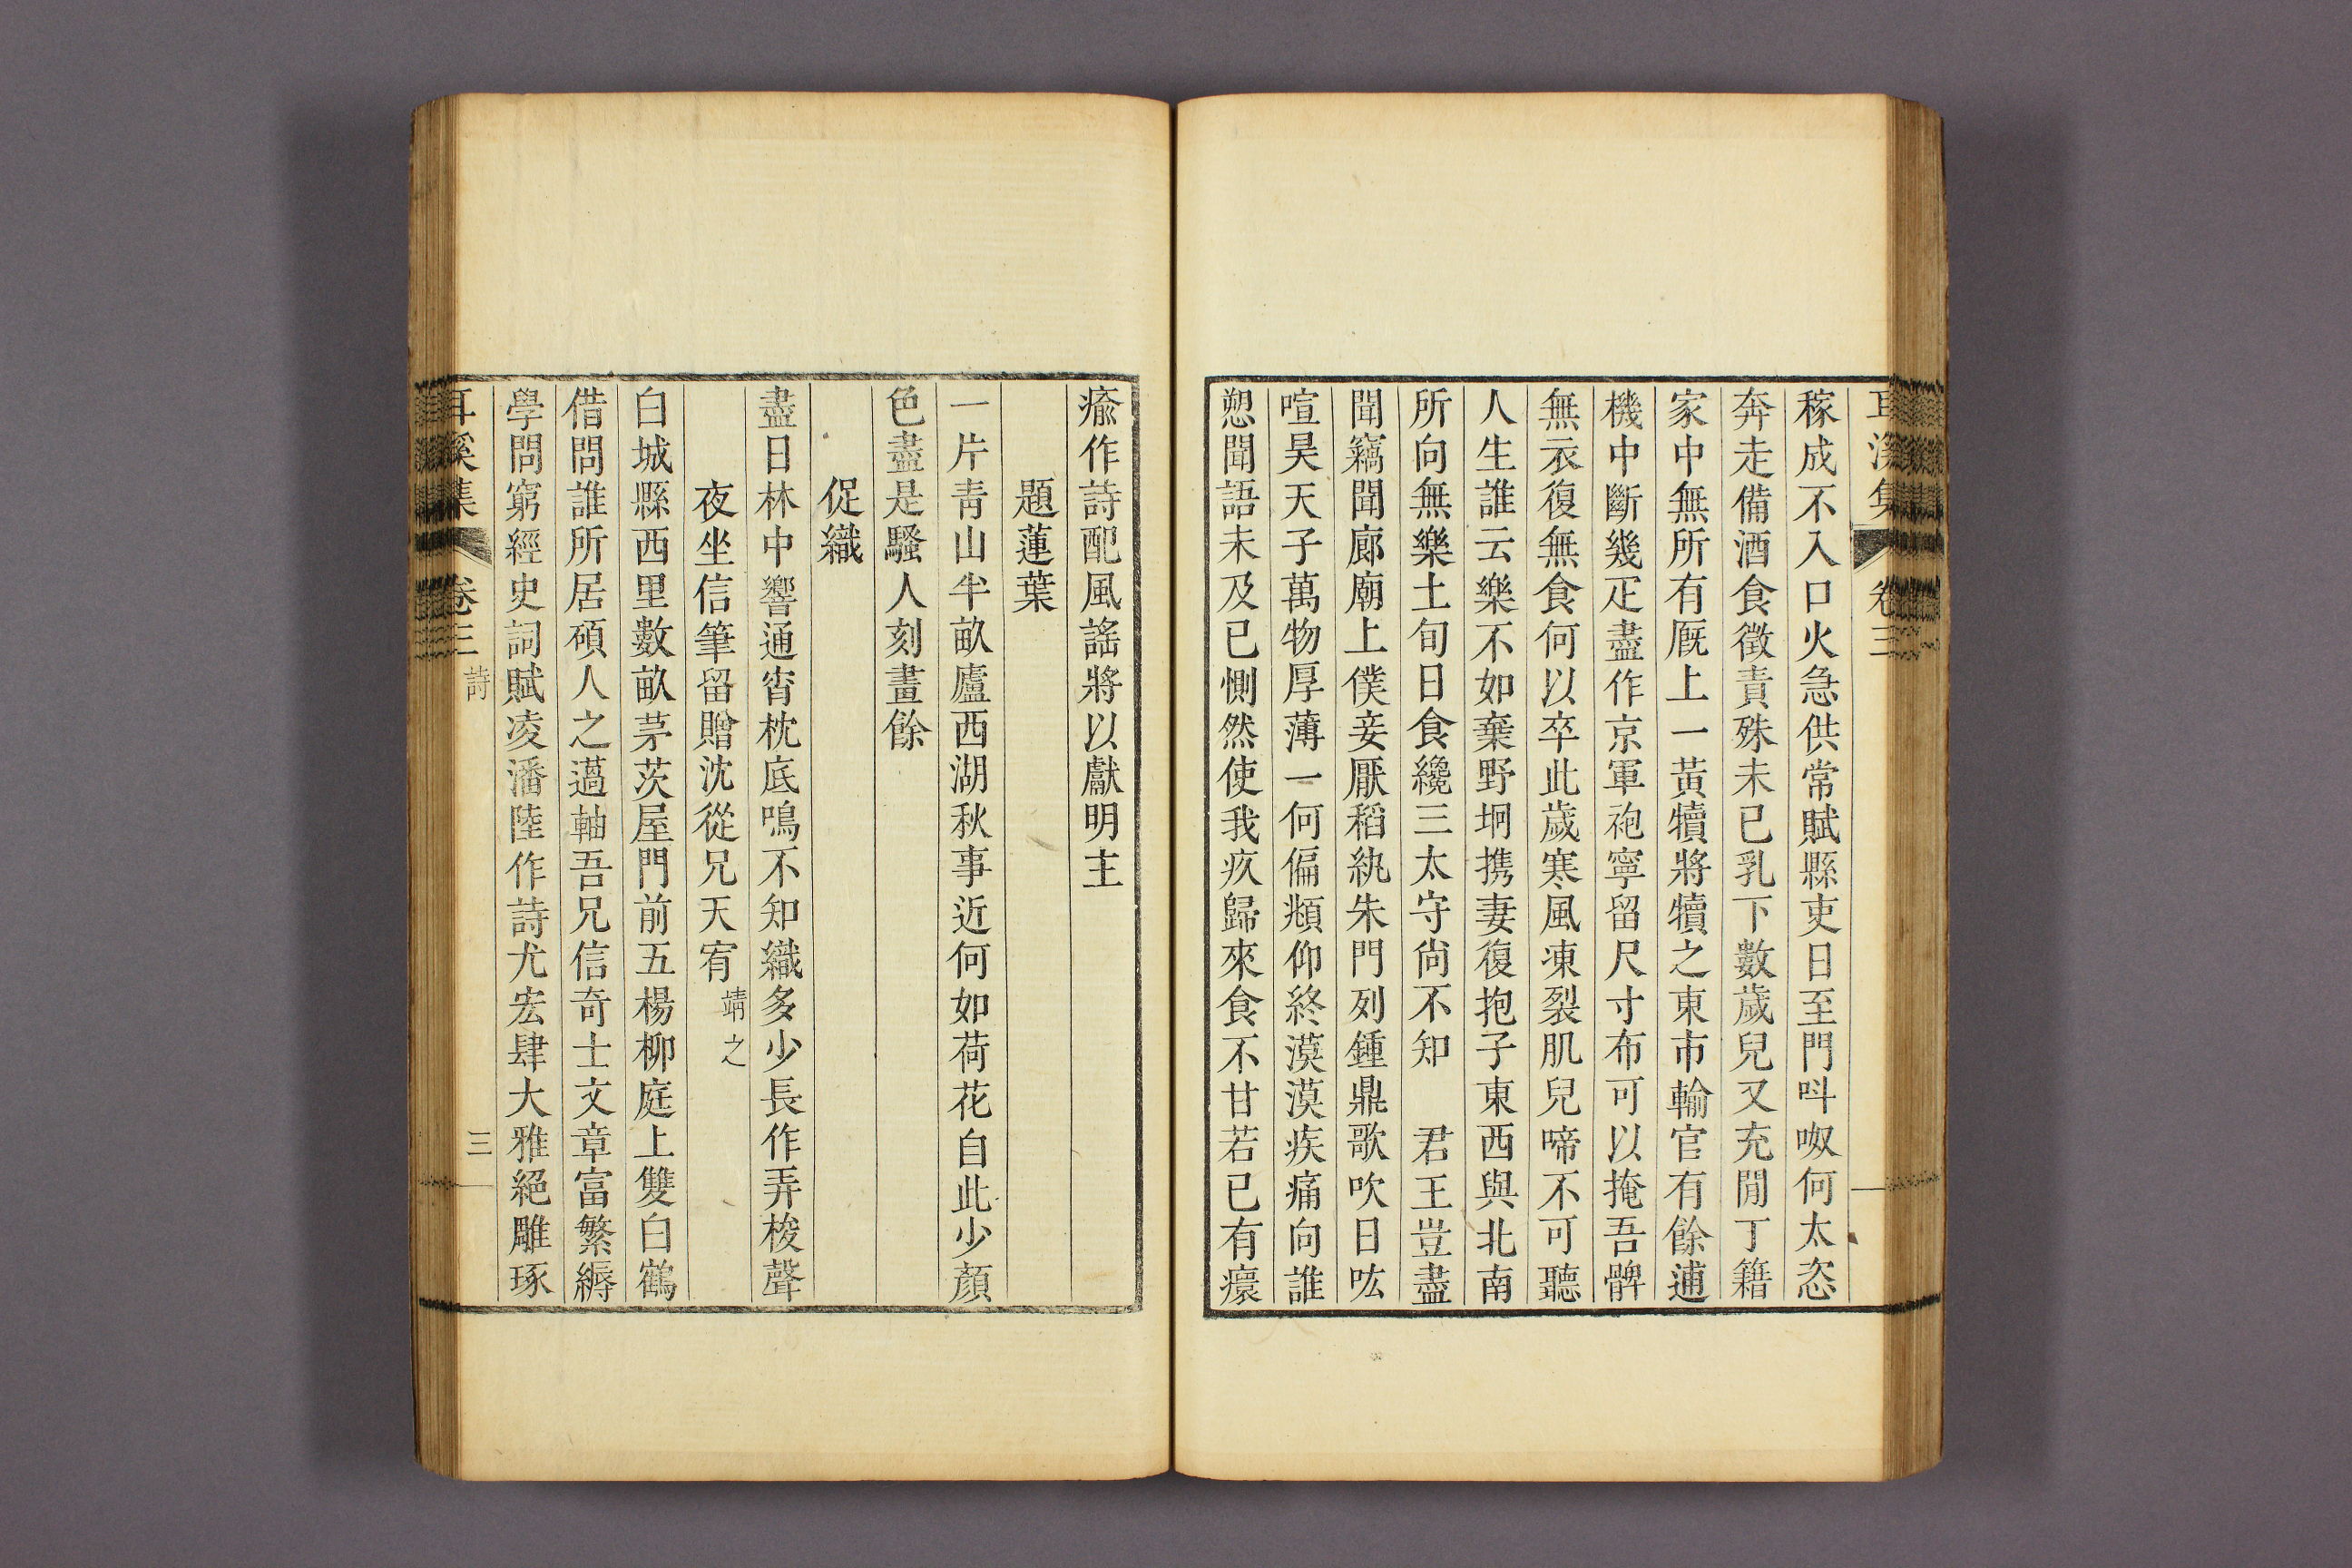 耳溪集 卷三
稼成不入口火急供常賦縣吏日至門呌呶何太恣
奔走備酒食徵責殊未已乳下數歲兒又充閒丁籍
家中無所有厩上一黃犢將犢之東市輸官有餘逋
機中斷幾疋盡作京軍袍寧留尺寸布可以掩吾髀
無衣復無食何以卒此歲寒風凍裂肌兒啼不可聽
人生誰云樂不如棄野坰携妻復抱子東西與北南
所向無樂土旬日食纔三太守尙不知 君王豈盡
聞竊聞廊廟上僕妾厭稻紈朱門列鍾鼎歌吹日吰
喧昊天子萬物厚薄一何偏頫仰終漠漠疾痛向誰
愬聞語未及已惻然使我疚歸來食不甘若已有癏
瘉作詩配風謠將以獻明主
題蓮葉
一片靑山半畝廬西湖秋事近何如荷花自此少顏
色盡是騷人刻畫餘
促織
盡日林中響通宵枕底鳴不知織多少長作弄梭聲
夜坐信筆留贈沈從兄天宥 靖之
白城縣西里數畝茅茨屋門前五楊柳庭上雙白鶴
借問誰所居碩人之薖軸吾兄信奇士文章富繁縟
學問窮經史詞賦凌潘陸作詩尤宏肆大雅絕雕琢
耳溪集 卷三 詩 三